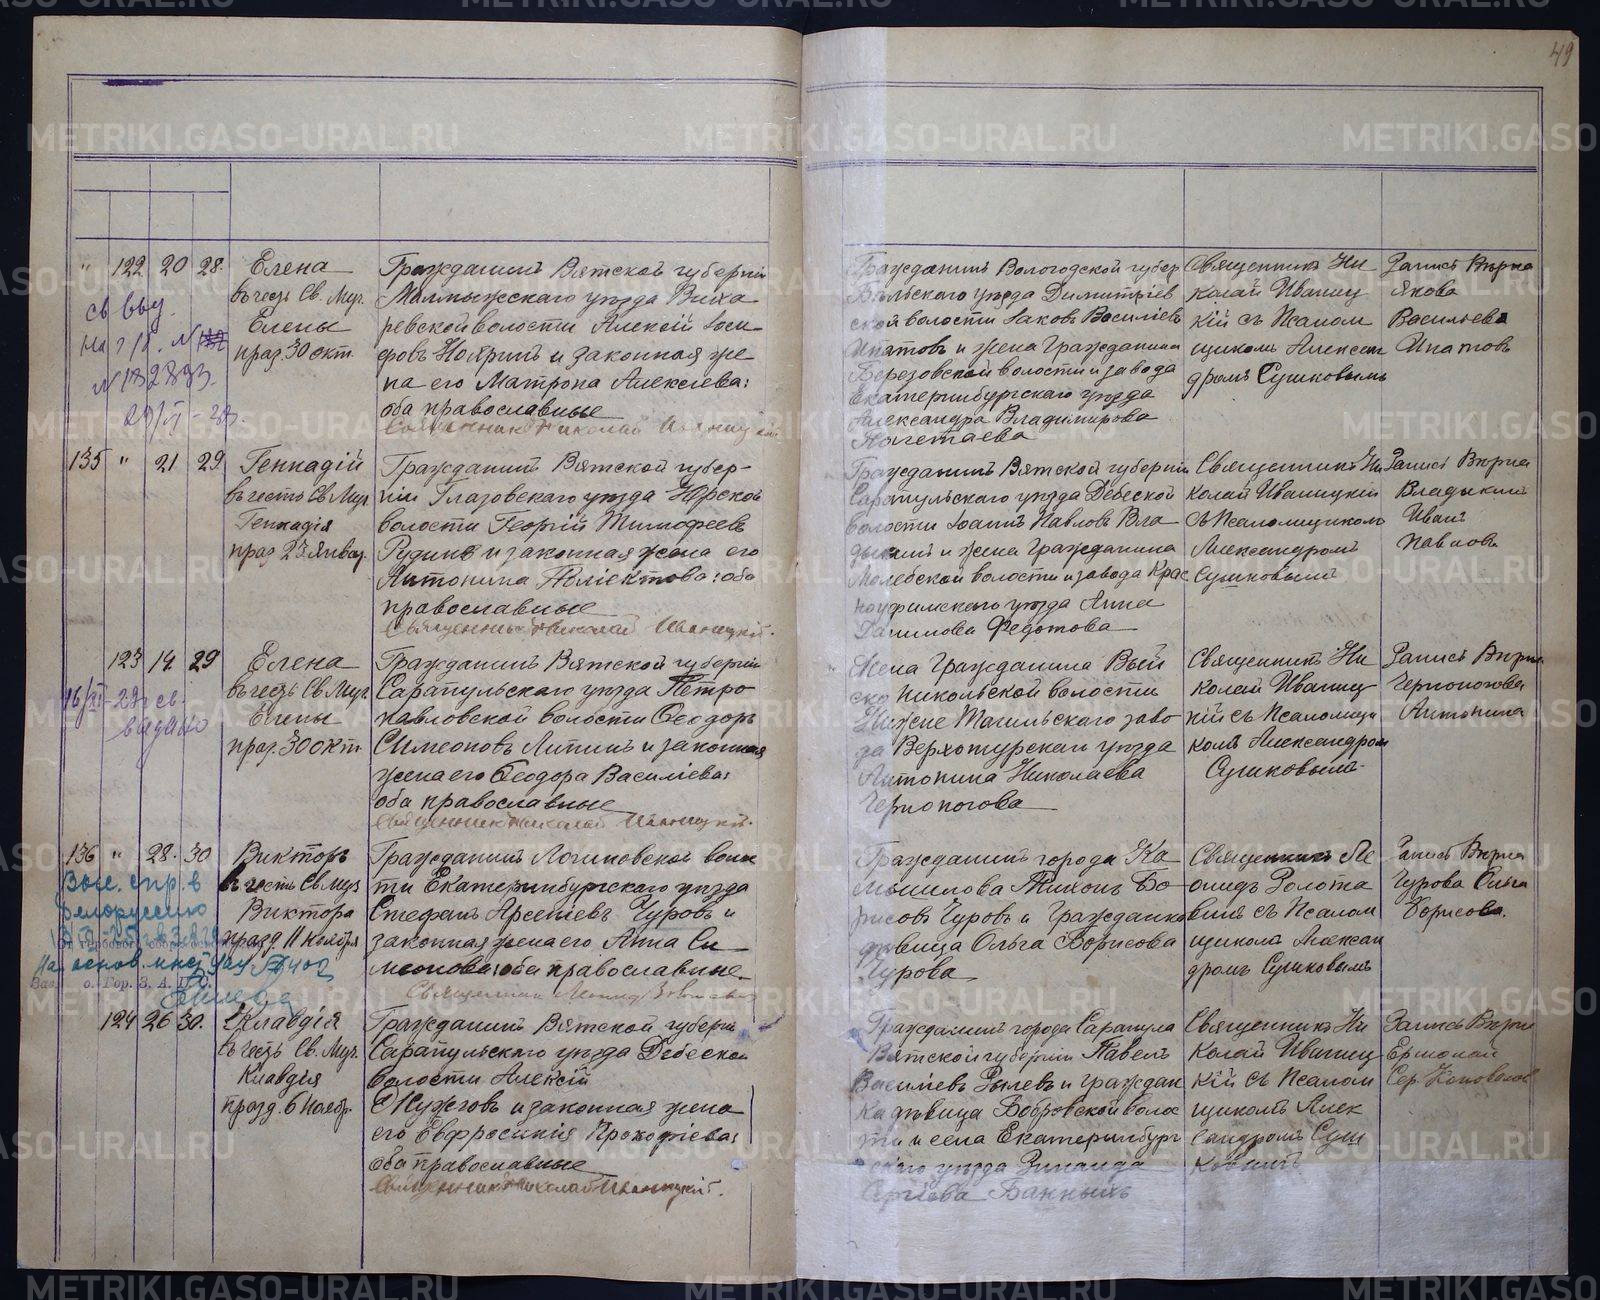 49
" 122 20 28.
Елена
въ честь Св. Муч.
Елены
праз. 30 окт.
Гражданинъ Вятской губерніи
Малмыжскаго уѣзда Виха
ревской волости Алексій Іоси
фовъ и законная же
на его Матрона Алексѣева:
оба православные
Священникъ Николай Иваницкій
Гражданинъ Вологодской губер
Бѣльского уѣзда Димитріев
ской волости Іаковъ Василіевъ
Ипатовъ и жена Гражданина
Березовской волости и завода
Екатеринбургскаго уѣзда
Александра Владимирова
Священникъ Ни
колай Иваниц
кій съ Псалом
щикомъ Алексан
дромъ Сушковымъ
Запись Вѣрна
Якова
Васильева
Ипатовъ
св. выд.
29/VI - 23.
135 " 21 29
Геннадій
въ честь Св. Муч.
Геннадія
праз. 23 январ.
Гражданинъ Вятской губер-
ніи Глазовскаго уѣзда Юрской
волости Георгій Тимофеевъ
Рудинъ и законная жена его
Антонина Поліектова: оба
православные
Священникъ Николай Иваницкій.
Гражданинъ Вятской губерніи
Сарапульскаго уѣзда Дебеской
волости Іоаннъ Павловъ Вла
дыкинъ и жена Гражданина
Молебской волости и завода Крас
ноуфимскаго уѣзда Анна
Данилова Федотова
Священникъ Ни
колай Иваницкій
съ Псаломщикомъ
Александромъ
Сушковымъ
Запись Вѣрна
Владыкинъ
Иванъ
Павловъ
123 14. 29
Елена
въ честь Св. Муч.
Елены
праз. 30 окт.
Гражданинъ Вятской губерніи
Сарапульскаго уѣзда Петро
павловской волости Ѳеодоръ
Симеоновъ Липинъ и законная
жена его Ѳеодора Василіева:
оба православные
Священникъ Николай Иваницкій.
Жена Гражданина Вый
ско Никольской волости
Нижне Тагильскаго заво
да Верхотурскаго уѣзда
Антонина Николаева
Черноногова
Священникъ Ни
колай Иваниц
кій съ Псаломщи
комъ Александром
Сушковымъ
Запись Вѣрна
Черноногова
Антонина
16/XI-29 г. св.
выдано
136 " 28. 30
Викторъ
въ честь Св. Муч.
Виктора
празд. 11 ноября
Гражданинъ Логиновской волос
ти Екатеринбургскаго уѣзда
Стефанъ Арсеніевъ Чуровъ и
законная жена его Анна Си
меонова: оба православные
Священникъ Леонидъ Золотавинъ
Гражданинъ города Ка
мышлова Тихонъ Бо
рисовъ Чуровъ и Гражданка
дѣвица Ольга Борисова
Чурова
Священникъ Ле
онидъ Золота
винъ съ Псалом
щикомъ Алексан
дромъ Сушковымъ
Запись Вѣрна
Чурова Ольга
Борисова.
Выс. спр. в
Белоруссию
124 26 30.
Клавдія
въ честь Св. Муч.
Клавдія
празд. 6 Ноябр.
Гражданинъ Вятской губерніи
Сарапульскаго уѣзда Дебеской
волости Алексій
Мужговъ и законная жена
его Евфросинія Прокофіева:
оба православные
Священникъ Николай Иваницкій.
Гражданинъ города Сарапула
Вятской губерніи Павелъ
Василіевъ Рылевъ и граждан
ка дѣвица Бобровской волос
ти и села Екатеринбург
скаго уѣзда Зинаида
Сергіева Банныхъ
Священникъ Ни
колай Иваниц
кій съ Псалом
щикомъ Алек
сандромъ Суш
ковымъ
Запись Вѣрна
METRIKI.GASO-URAL.RU